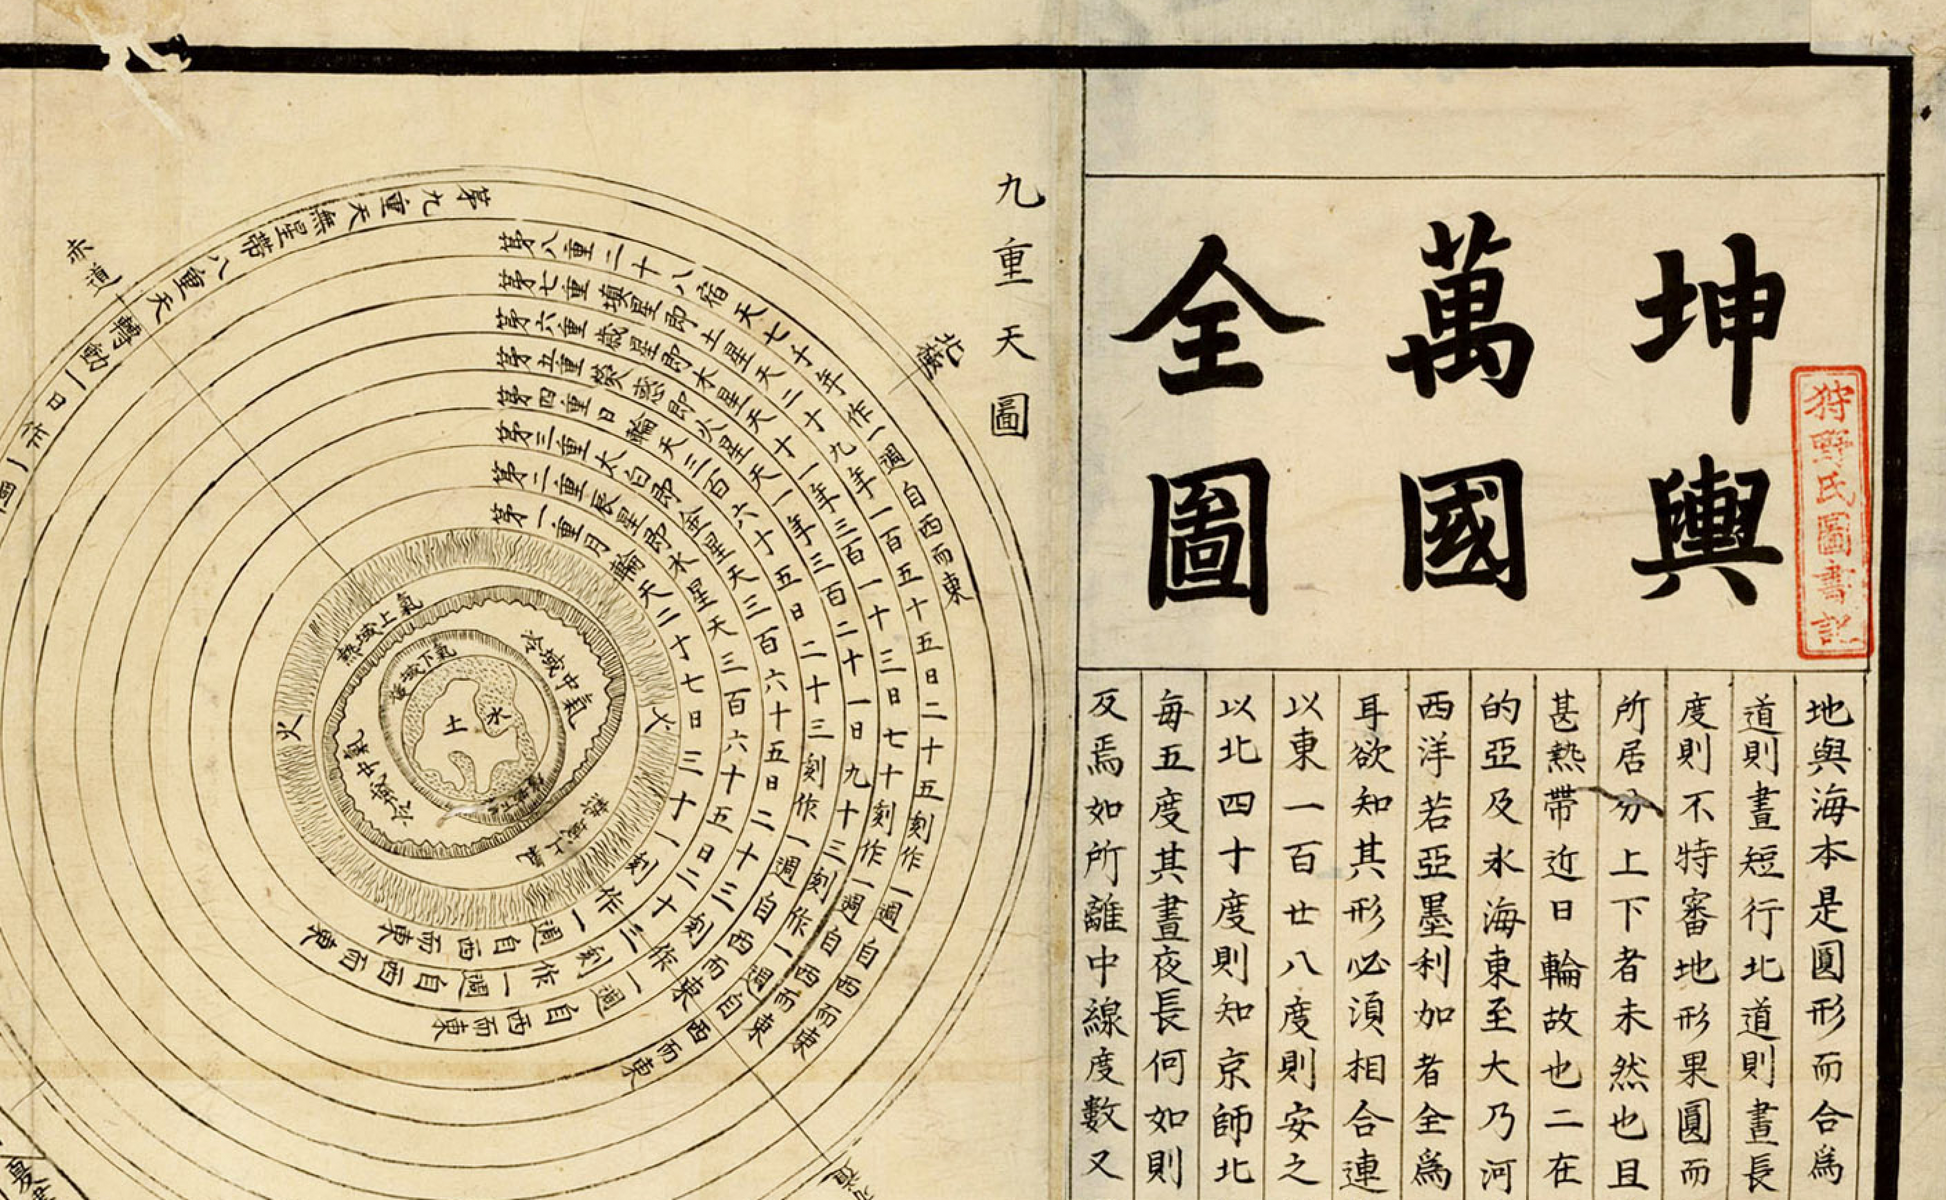 坤輿
萬國
全圖
狩野氏圖書記
地與海本是圓形而合爲
道則晝短行北道則晝長
度則不特審地形果圓而
所居分上下者未然也且
甚熱帶近日輪故也二在
的亞及氷海東至大乃河
西洋若亞墨利加者全爲
耳欲知其形必須相合連
以東一百廿八度則安之
以北四十度則知京師北
每五度其晝夜長何如則
反焉如所離中線度數又
九重天圖
北極
赤道
第九重天無星帶八重天轉動一日作一週
第八重二十八宿天七千年作一週自西而東
第七重填星即土星天二十九年一百五十五日二十五刻作一週自西而東
第六重歲星即木星天十一年三百一十三日七十刻作一週自西而東
第五重熒惑即火星天一年三百二十一日九十三刻作一週自西而東
第四重日輪天三百六十五日二十三刻作一週自西而東
第三重太白即金星天三百六十五日二十三刻作一週自西而東
第二重辰星即水星天三百六十五日二十三刻作一週自西而東
第一重月輪天二十七日三十一刻作一週自西而東
火
火
熱域上氣
冷域中氣
冷域中氣
下氣
水
土
夏